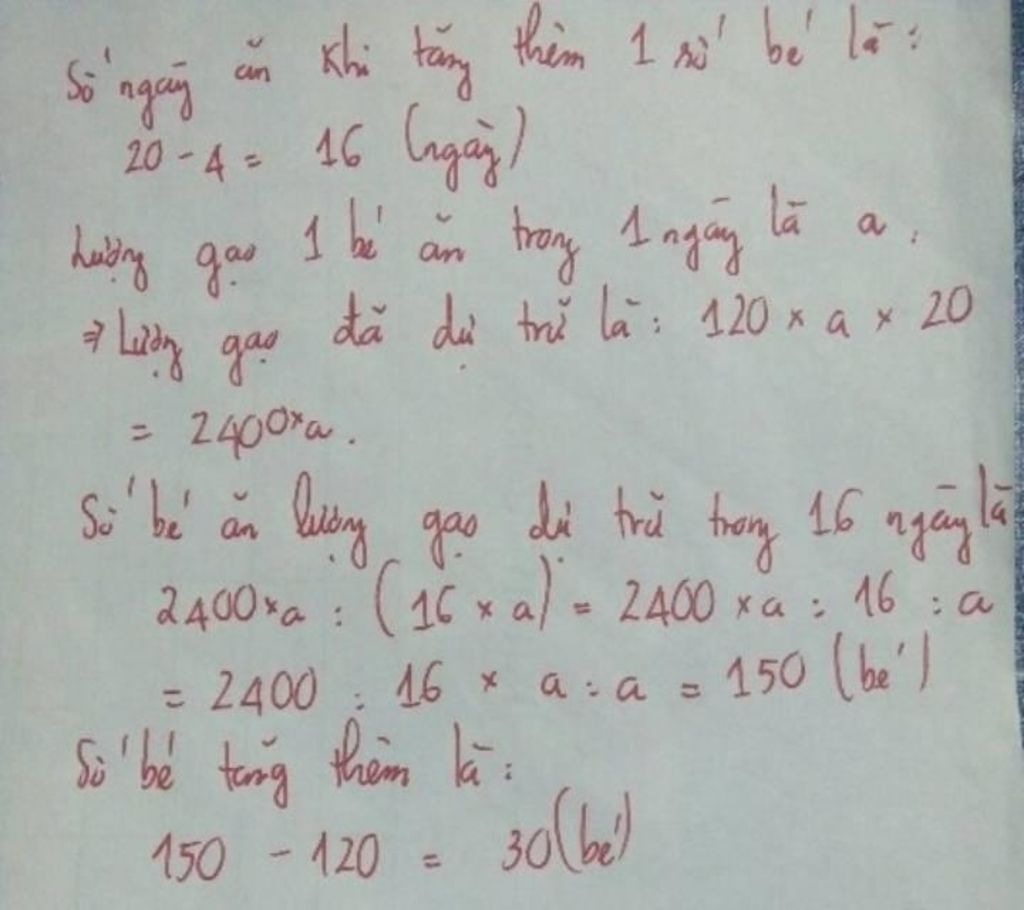 Số ngày ăn khi tăng thêm 1 số bé là:
20 - 4 = 16 (ngày)
Lượng gạo 1 bé ăn trong 1 ngày là a.
⇒ Lượng gạo đã dự trữ là: 120 × a × 20
= 2400×a.
Số bé ăn lượng gạo dự trữ trong 16 ngày là
2400×a : (16 × a) = 2400 × a : 16 : a
= 2400 : 16 × a : a = 150 (bé)
Số bé tăng thêm là:
150 - 120 = 30 (bé)